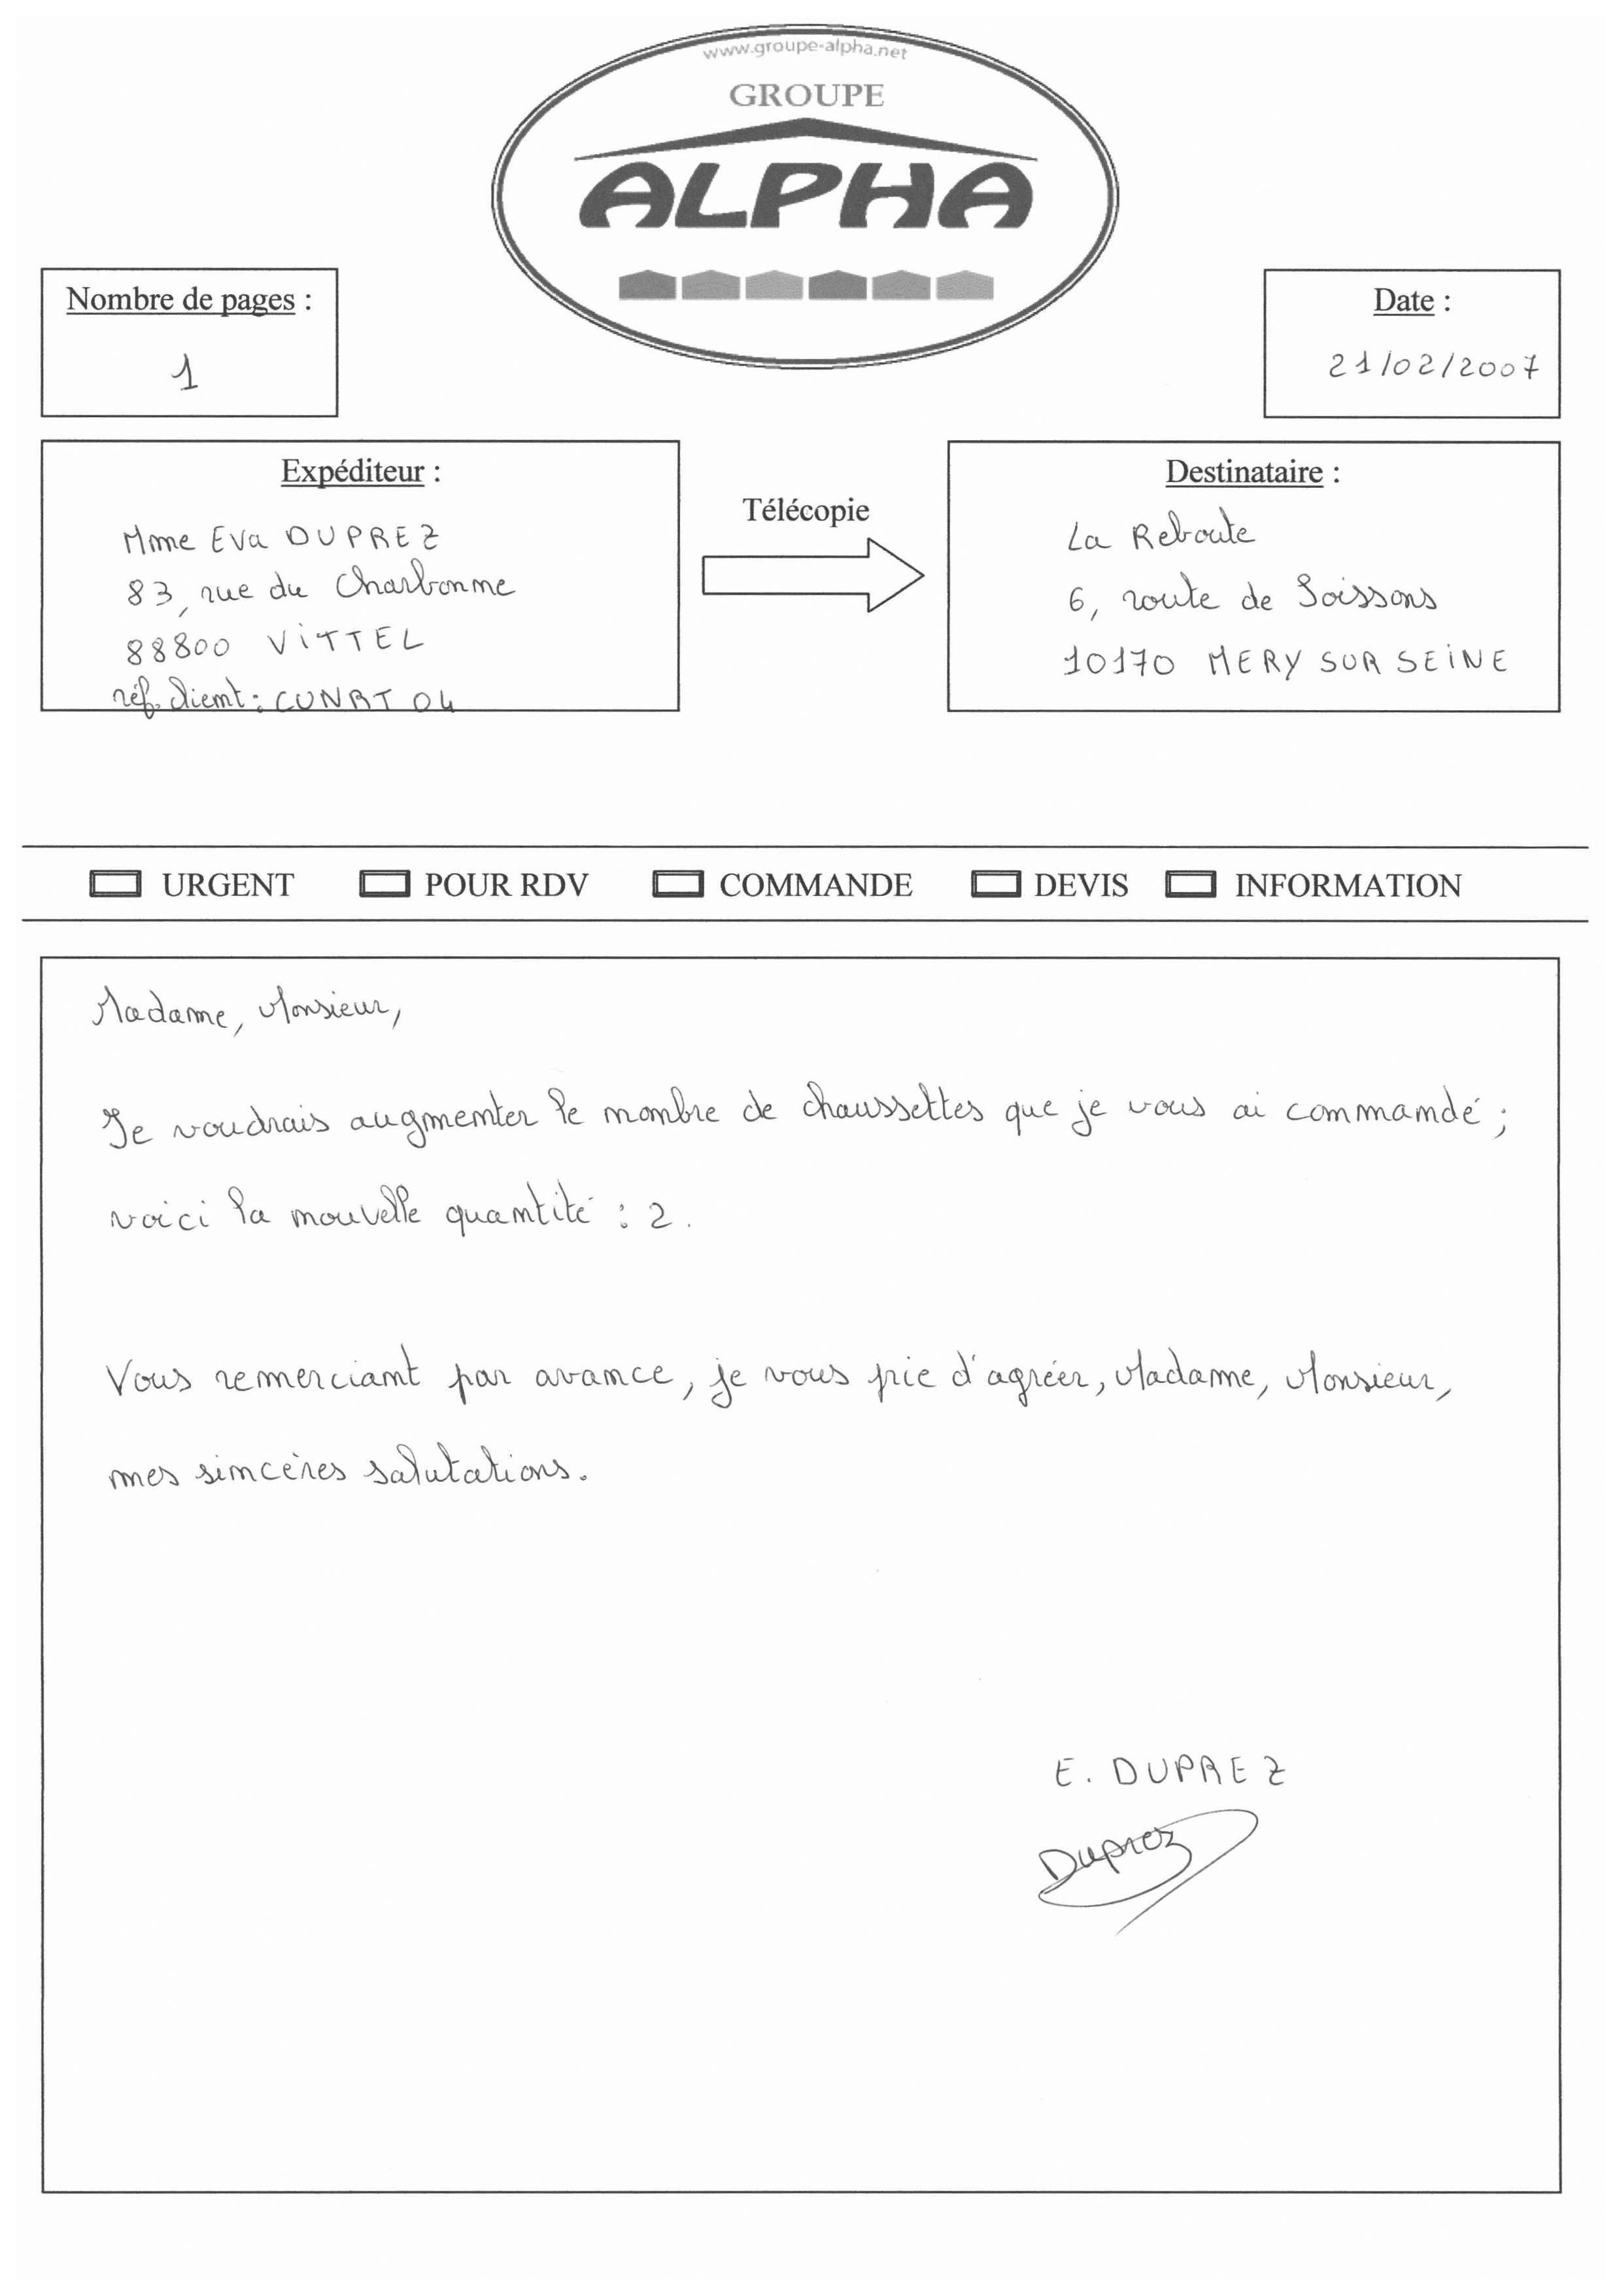 www.groupe-alpha.net
GROUPE
ALPHA
Nombre de pages :
1
Date :
21/02/2007
Expéditeur :
Mme Eva DUPREZ
83, rue du Charbonne
88800 VITTEL
réf. client : CUNAT 04
Télécopie
Destinataire :
La Reboute
6, route de Soissons
10170 MERY SUR SEINE
URGENT POUR RDV COMMANDE DEVIS INFORMATION
Madame, Monsieur,
Je voudrais augmenter le nombre de chaussettes que je vous ai commandé ;
voici la nouvelle quantité : 2.
Vous remerciant par avance, je vous prie d'agréer, Madame, Monsieur,
mes sincères salutations.
E. DUPREZ
Duprez